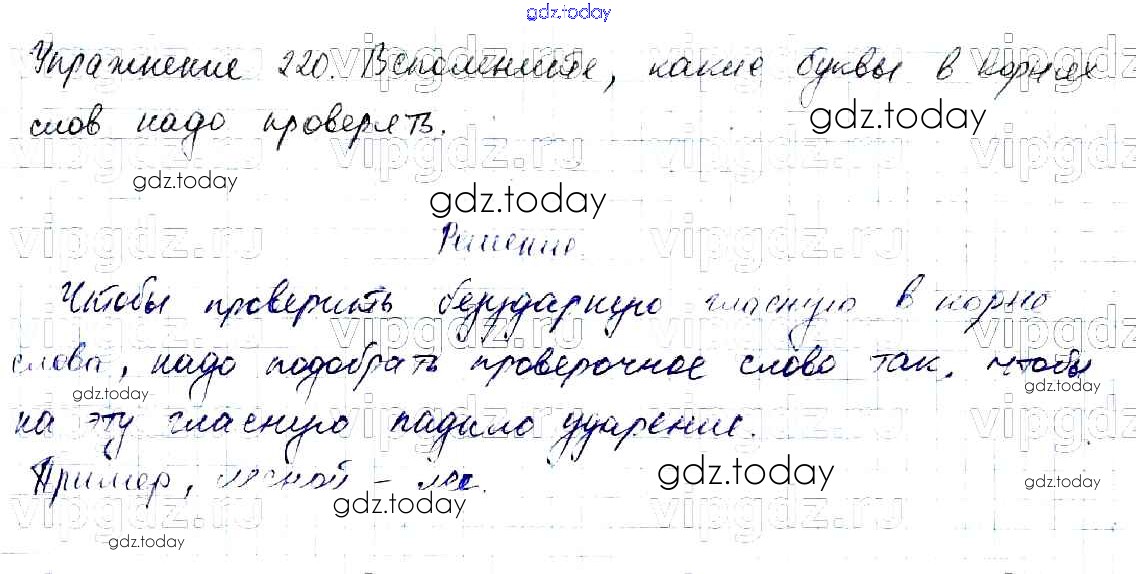 gdz.today
Упражнение 220. Вспомните, какие буквы в корнях
слов надо проверять.
gdz.today
gdz.today
gdz.today
Решение.
Чтобы проверить безударную гласную в корне
слова, надо подобрать проверочное слово так, чтобы
gdz.today
gdz.today
на эту гласную падало ударение.
Пример, лесной – лес.
gdz.today
gdz.today
gdz.today
gdz.today
vipgdz.ru